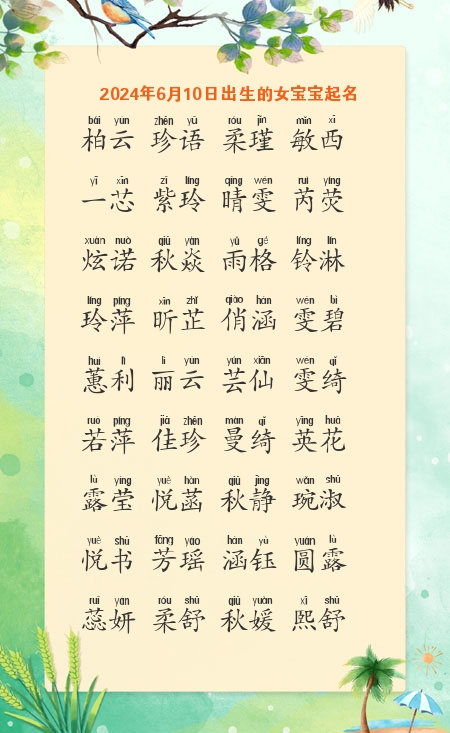 2024年6月10日出生的女宝宝起名
bái yún zhēn yǔ róu jǐn mǐn xī
柏云 珍语 柔瑾 敏西
yī xīn zǐ líng qíng wén ruì yíng
一芯 紫玲 晴雯 芮荧
xuàn nuò qiū yàn yǔ gé líng lín
炫诺 秋焱 雨格 铃淋
líng píng xīn zhǐ qiào hán wén bì
玲萍 昕芷 俏涵 雯碧
huì lì lì yún yún xiān wén qǐ
蕙利 丽云 芸仙 雯绮
ruò píng jiā zhēn màn qǐ yīng huā
若萍 佳珍 曼绮 英花
lù yíng yuè hàn qiū jìng wǎn shū
露莹 悦菡 秋静 琬淑
yuè shū fāng yáo hán yù yuán lù
悦书 芳瑶 涵钰 圆露
ruǐ yán róu shū qiū yuàn xī shū
蕊妍 柔舒 秋媛 熙舒